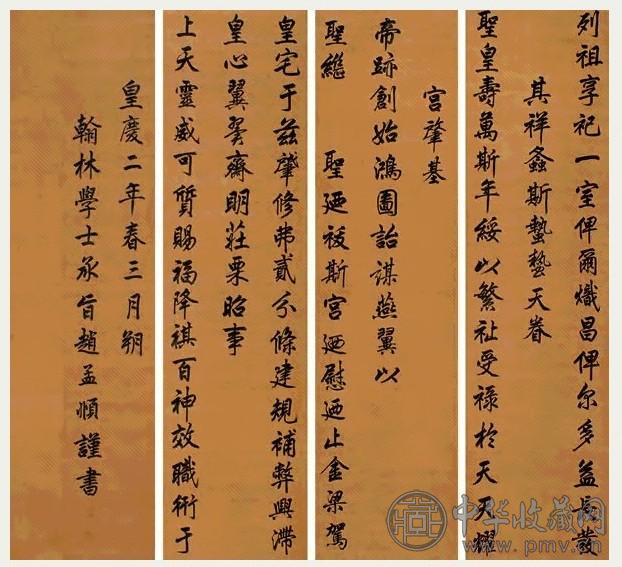 列祖享祀一室俾爾熾昌俾尔多益長發
其祥螽斯蟄蟄天眷
聖皇壽萬斯年綏以繁祉受祿於天天耀
宮肇基
帝跡創始鴻圖詒謀燕翼以
聖繼 聖廼祓斯宮廼慰廼止金梁駕
皇宅于茲肇修弗貳分條建規補弊興滯
皇心翼翼齋明莊栗昭事
上天靈威可質賜福降祺百神效職衎于
皇慶二年春三月朔
翰林學士承旨趙孟頫謹書
中华收藏网
www.pmv.cn